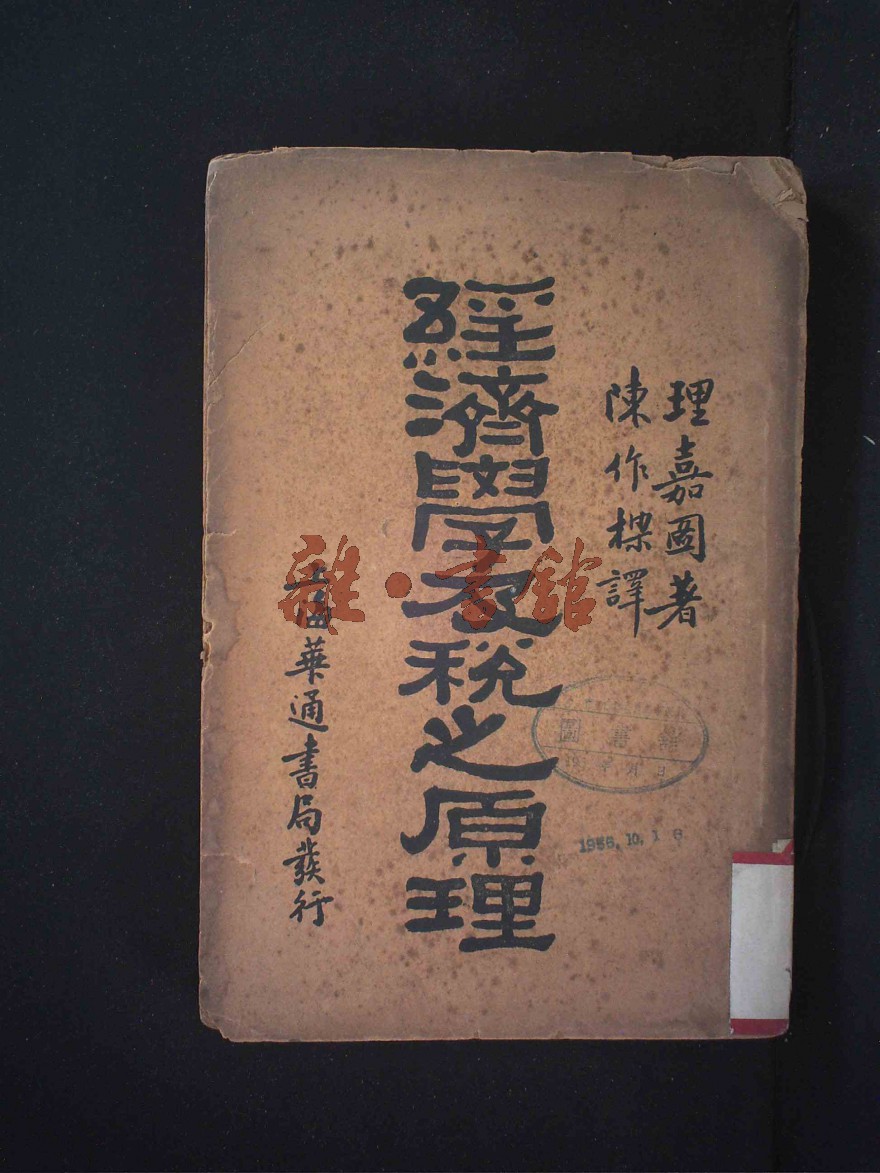 理嘉圖著
陳作樑譯
經濟學及稅之原理
上海華通書局發行
雜·書館
圖書
1956.10.16